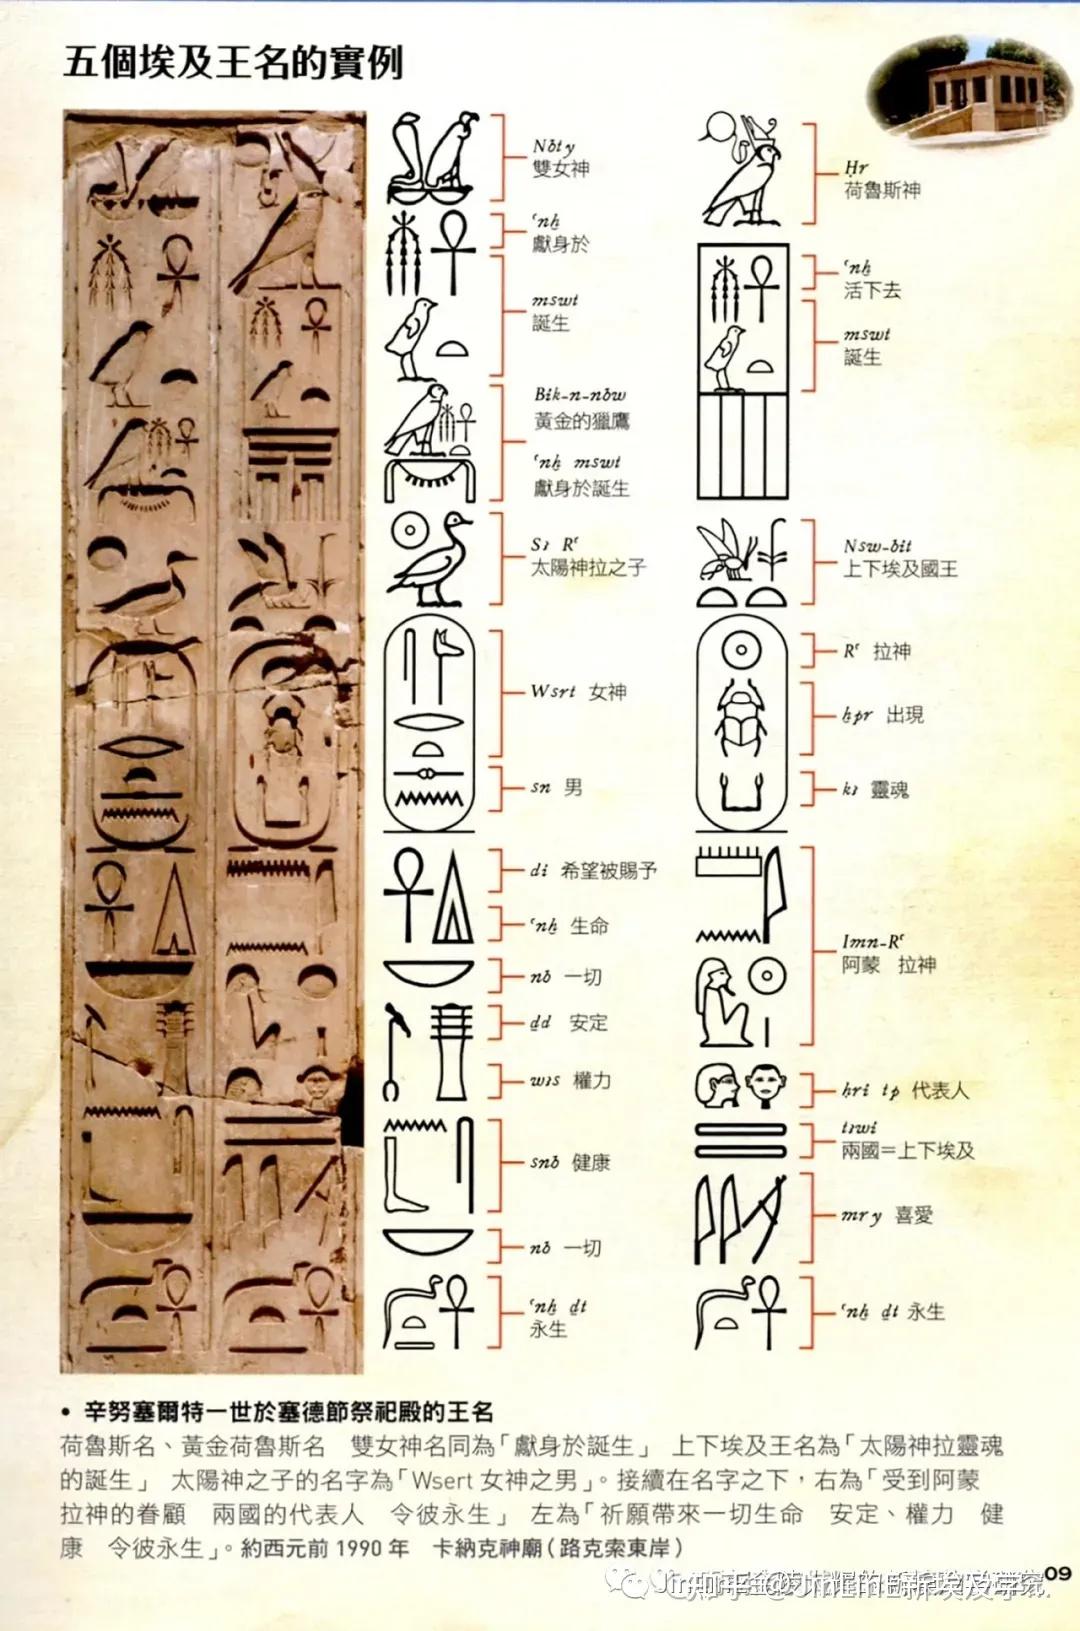 五個埃及王名的實例
Nbty
雙女神
ꜥnḫ
獻身於
mswt
誕生
Bik-n-nbw
黃金的獵鷹
ꜥnḫ mswt
獻身於誕生
Sꜣ Rꜥ
太陽神拉之子
Wsrt 女神
sn 男
di 希望被賜予
ꜥnḫ 生命
nb 一切
ḏd 安定
wꜣs 權力
snb 健康
nb 一切
ꜥnḫ ḏt
永生
Ḥr
荷魯斯神
ꜥnḫ
活下去
mswt
誕生
Nsw-bit
上下埃及國王
Rꜥ 拉神
ḫpr 出現
kꜣ 靈魂
Imn-Rꜥ
阿蒙 拉神
ḥri tp 代表人
tꜣwi
兩國＝上下埃及
mry 喜愛
ꜥnḫ ḏt 永生
• 辛努塞爾特一世於塞德節祭祀殿的王名
荷魯斯名、黃金荷魯斯名 雙女神名同為「獻身於誕生」 上下埃及王名為「太陽神拉靈魂
的誕生」 太陽神之子的名字為「Wsert 女神之男」。接續在名字之下，右為「受到阿蒙
拉神的眷顧 兩國的代表人 令彼永生」 左為「祈願帶來一切生命 安定、權力 健
康 令彼永生」。約西元前 1990 年 卡納克神廟（路克索東岸）
09